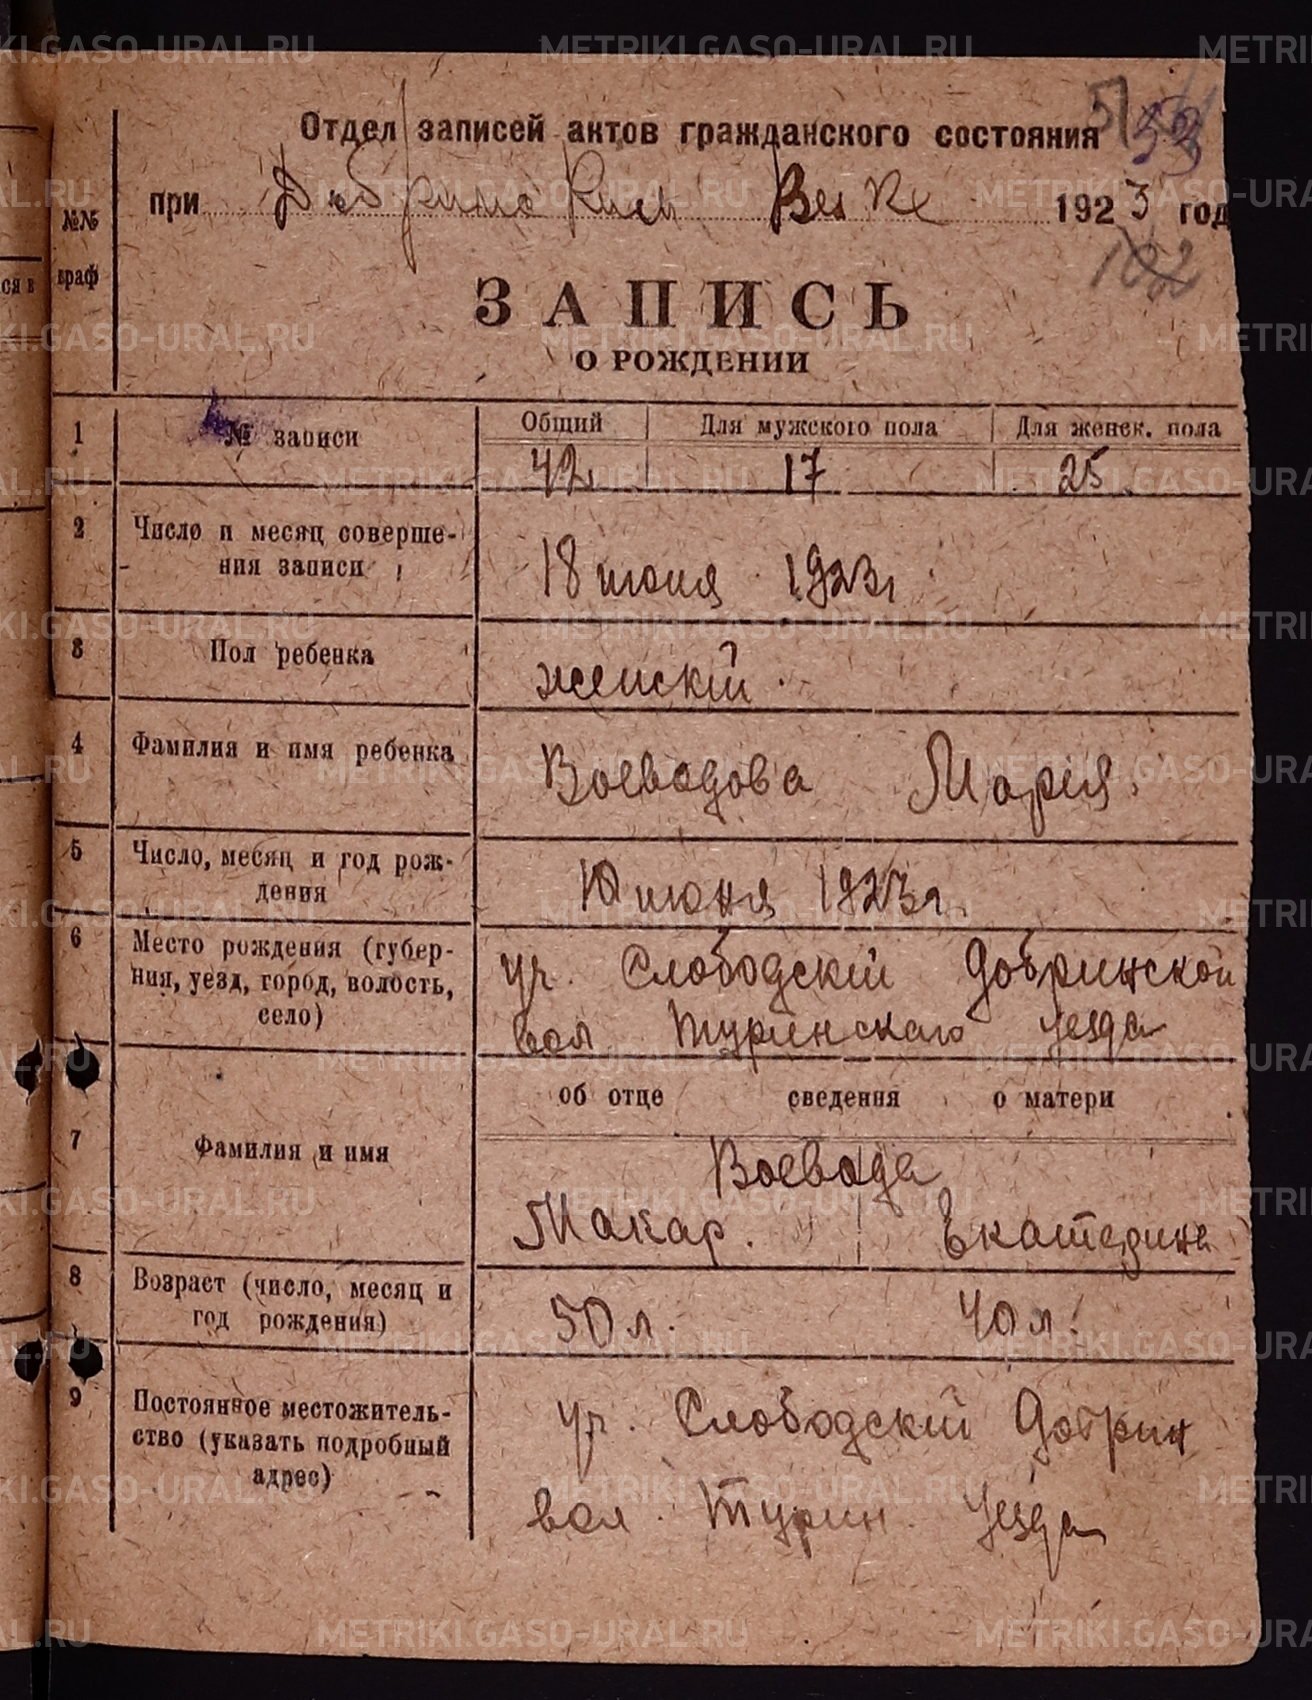 51 53
Отдел записей актов гражданского состояния
при Добринском Вике 1923 год
102
№№ граф
ЗАПИСЬ
О РОЖДЕНИИ
1 № записи Общий Для мужского пола Для женск. пола
42 17 25
2 Число и месяц соверше-
ния записи 18 июня 1923г
3 Пол ребенка женскій
4 Фамилия и имя ребенка Воеводова Мария.
5 Число, месяц и год рож-
дения 10 июня 1923г.
6 Место рождения (губер-
ния, уезд, город, волость,
село)
уч. Слободскій Добринской
вол Туринскаго Уезда
об отце сведения о матери
7 Фамилия и имя
Воевода
Макар. Екатерина
8 Возраст (число, месяц и
год рождения) 50 л. 40 л.
9 Постоянное местожитель-
ство (указать подробный
адрес)
уч. Слободскій Добрин
вол. Турин. Уезда
METRIKI.GASO-URAL.RU